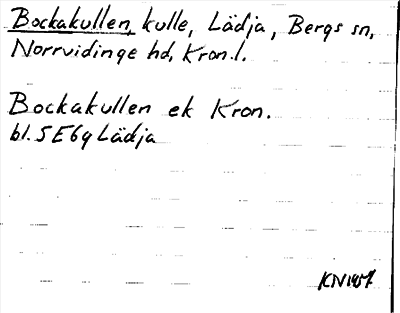 Bockakullen, kulle, Lädja, Bergs sn,
Norrvidinge hd, Kron.l.
Bockakullen ek Kron.
bl. 5E6g Lädja